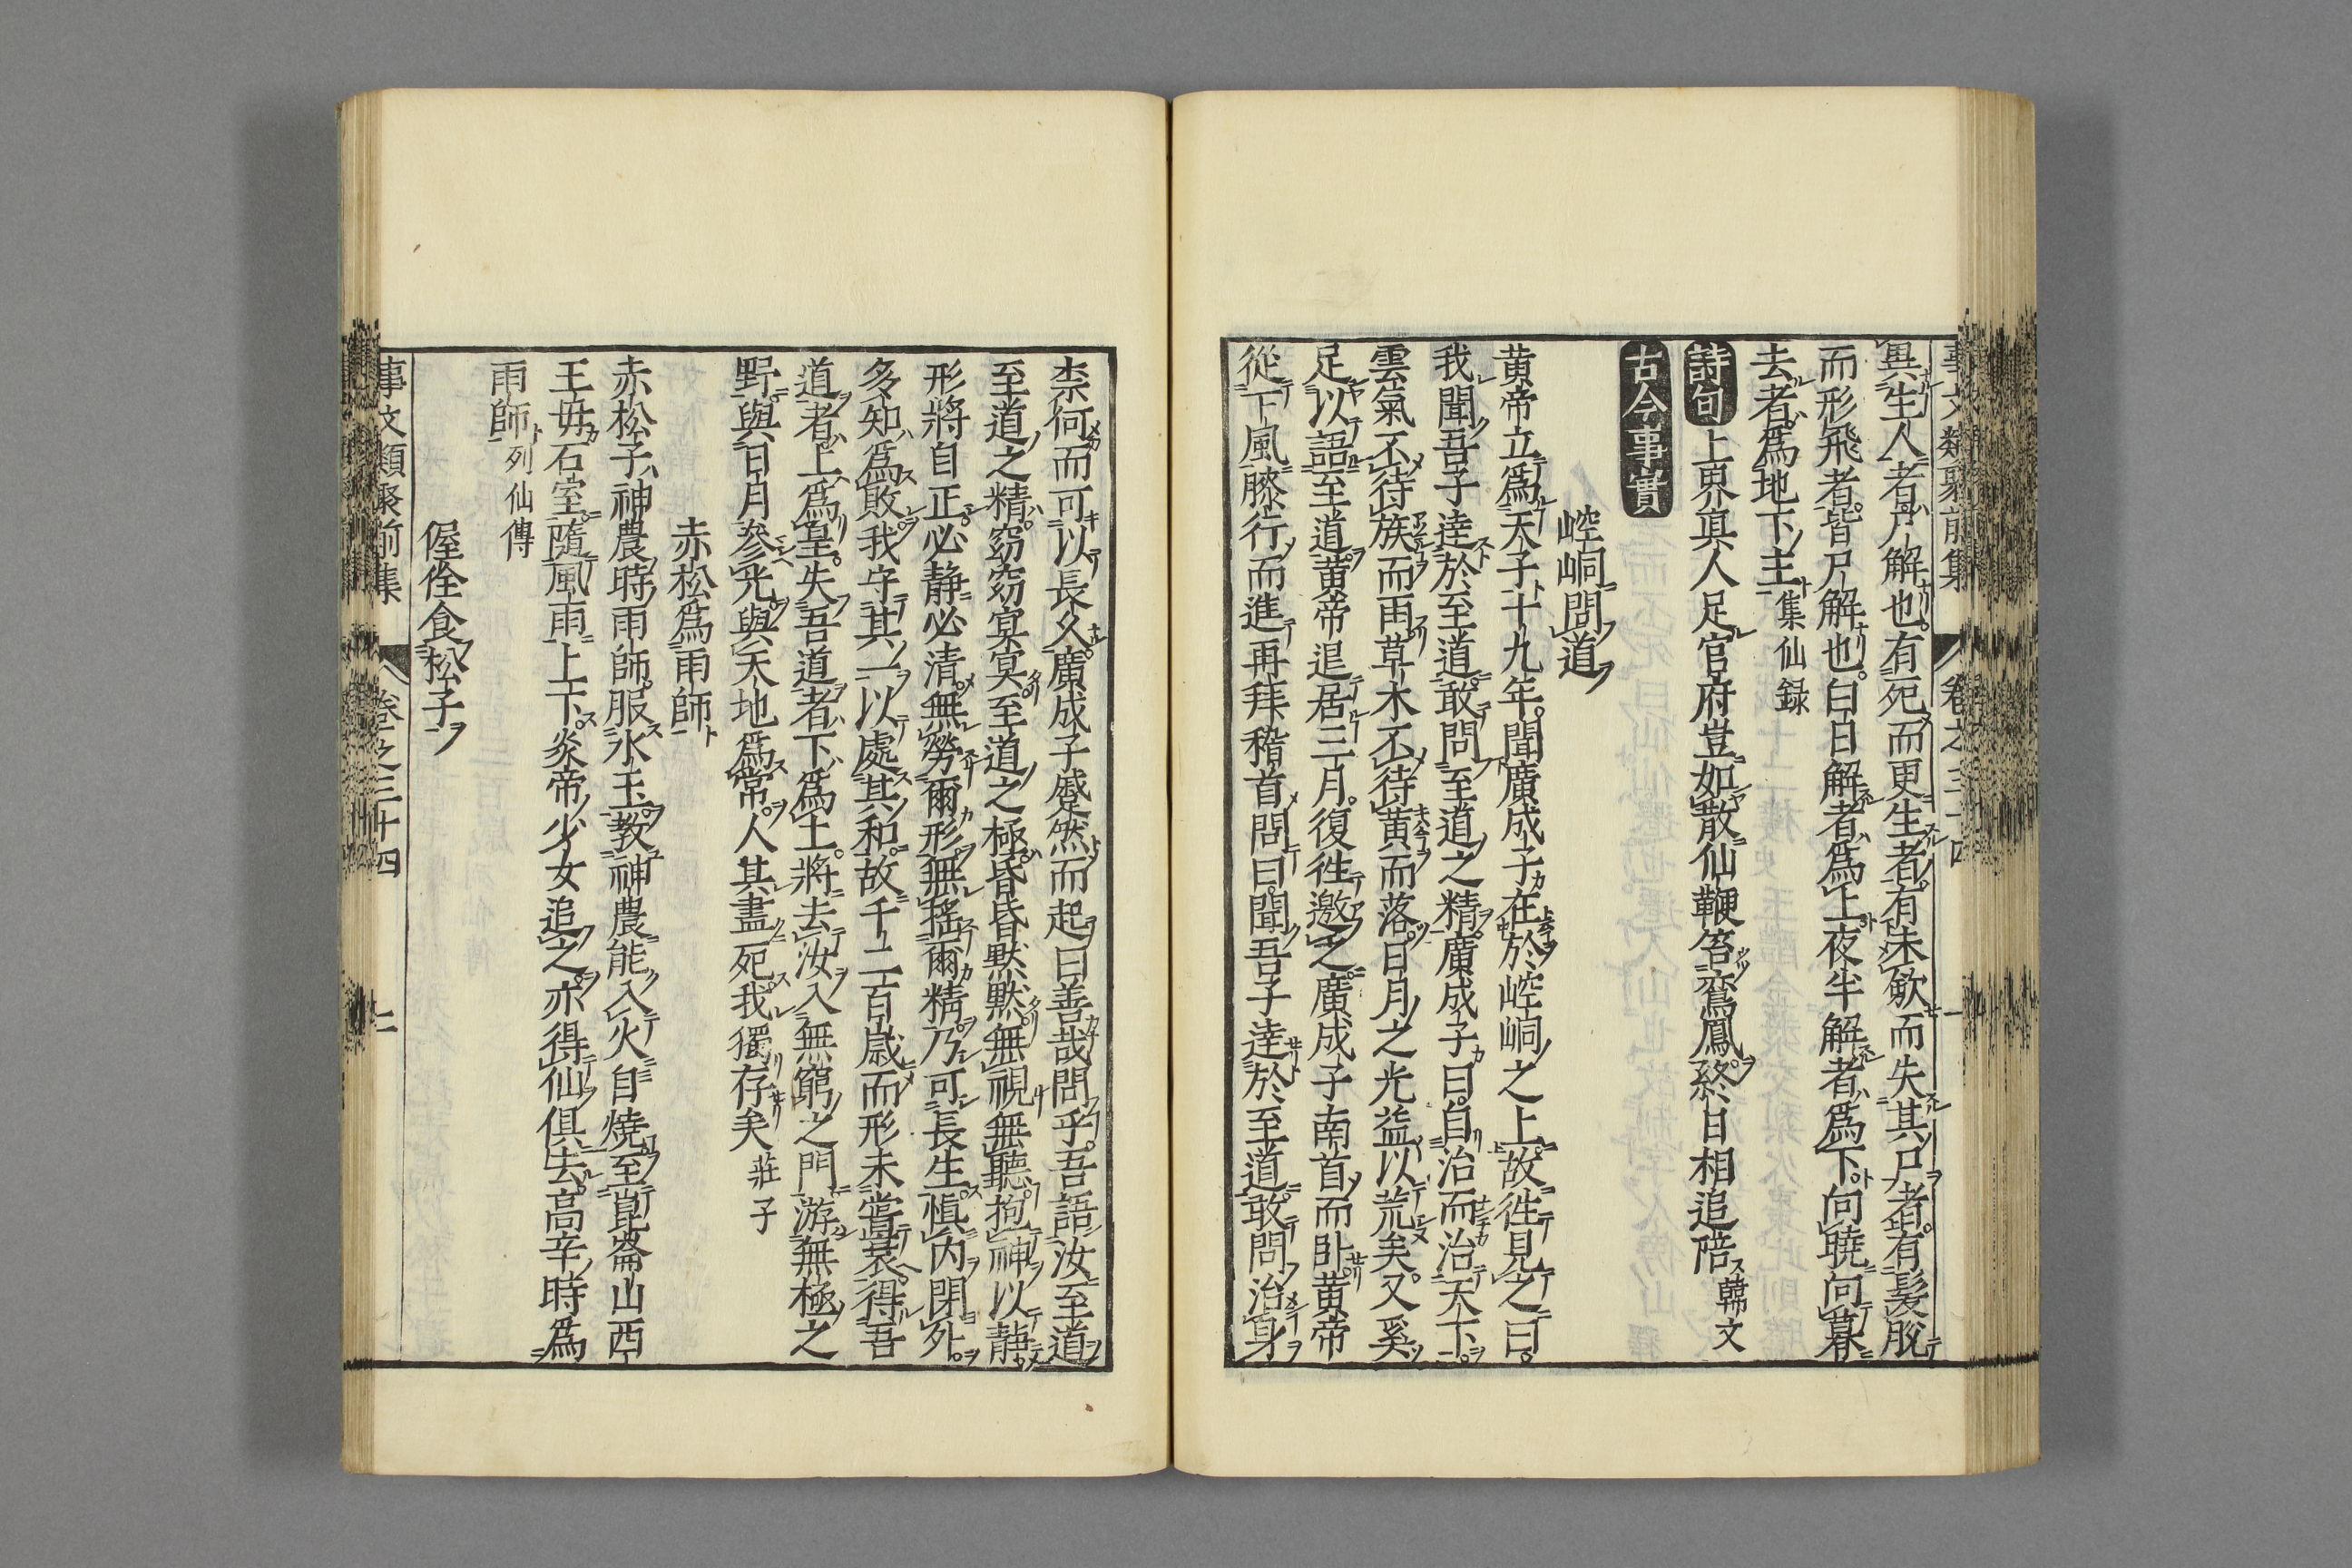 事文類聚前集 卷之三十四
異生人者尸解也有死而更生者有未歛而失其尸者有髮脫
而形飛者皆尸解也白日解者爲上夜半解者爲下向曉向暮
去者爲地下主集仙録
詩句 上界眞人足官府豈如散仙鞭笞鸞鳳終日相追陪韓文
古今事實
崆峒問道
黄帝立爲天子十九年聞廣成子在於崆峒之上故徃見之曰
我聞吾子達於至道敢問至道之精廣成子曰自治而治天下
雲氣不待族而雨草木不待黄而落日月之光益以荒矣又奚
足以語至道黄帝退居三月復徃邀之廣成子南首而卧黄帝
從下風膝行而進再拜稽首問曰聞吾子達於至道敢問治身
柰何而可以長久廣成子蹙然而起曰善哉問乎吾語汝至道
至道之精窈窈冥冥至道之極昏昏默默無視無聽抱神以靜
形將自正必静必清無勞爾形無揺爾精乃可長生愼内閉外
多知爲敗我守其一以處其和故千二百歳而形未嘗衰得吾
道者上爲皇失吾道者下爲土將去汝入無窮之門游無極之
野與日月參光與天地爲常人其盡死我獨存矣莊子
赤松爲雨師
赤松子神農時雨師服水玉教神農能入火自燒至崑崙山西
王母石室隨風雨上下炎帝少女追之亦得仙俱去高辛時爲
雨師列仙傳
偓佺食松子
事文類聚前集 卷之三十四 二